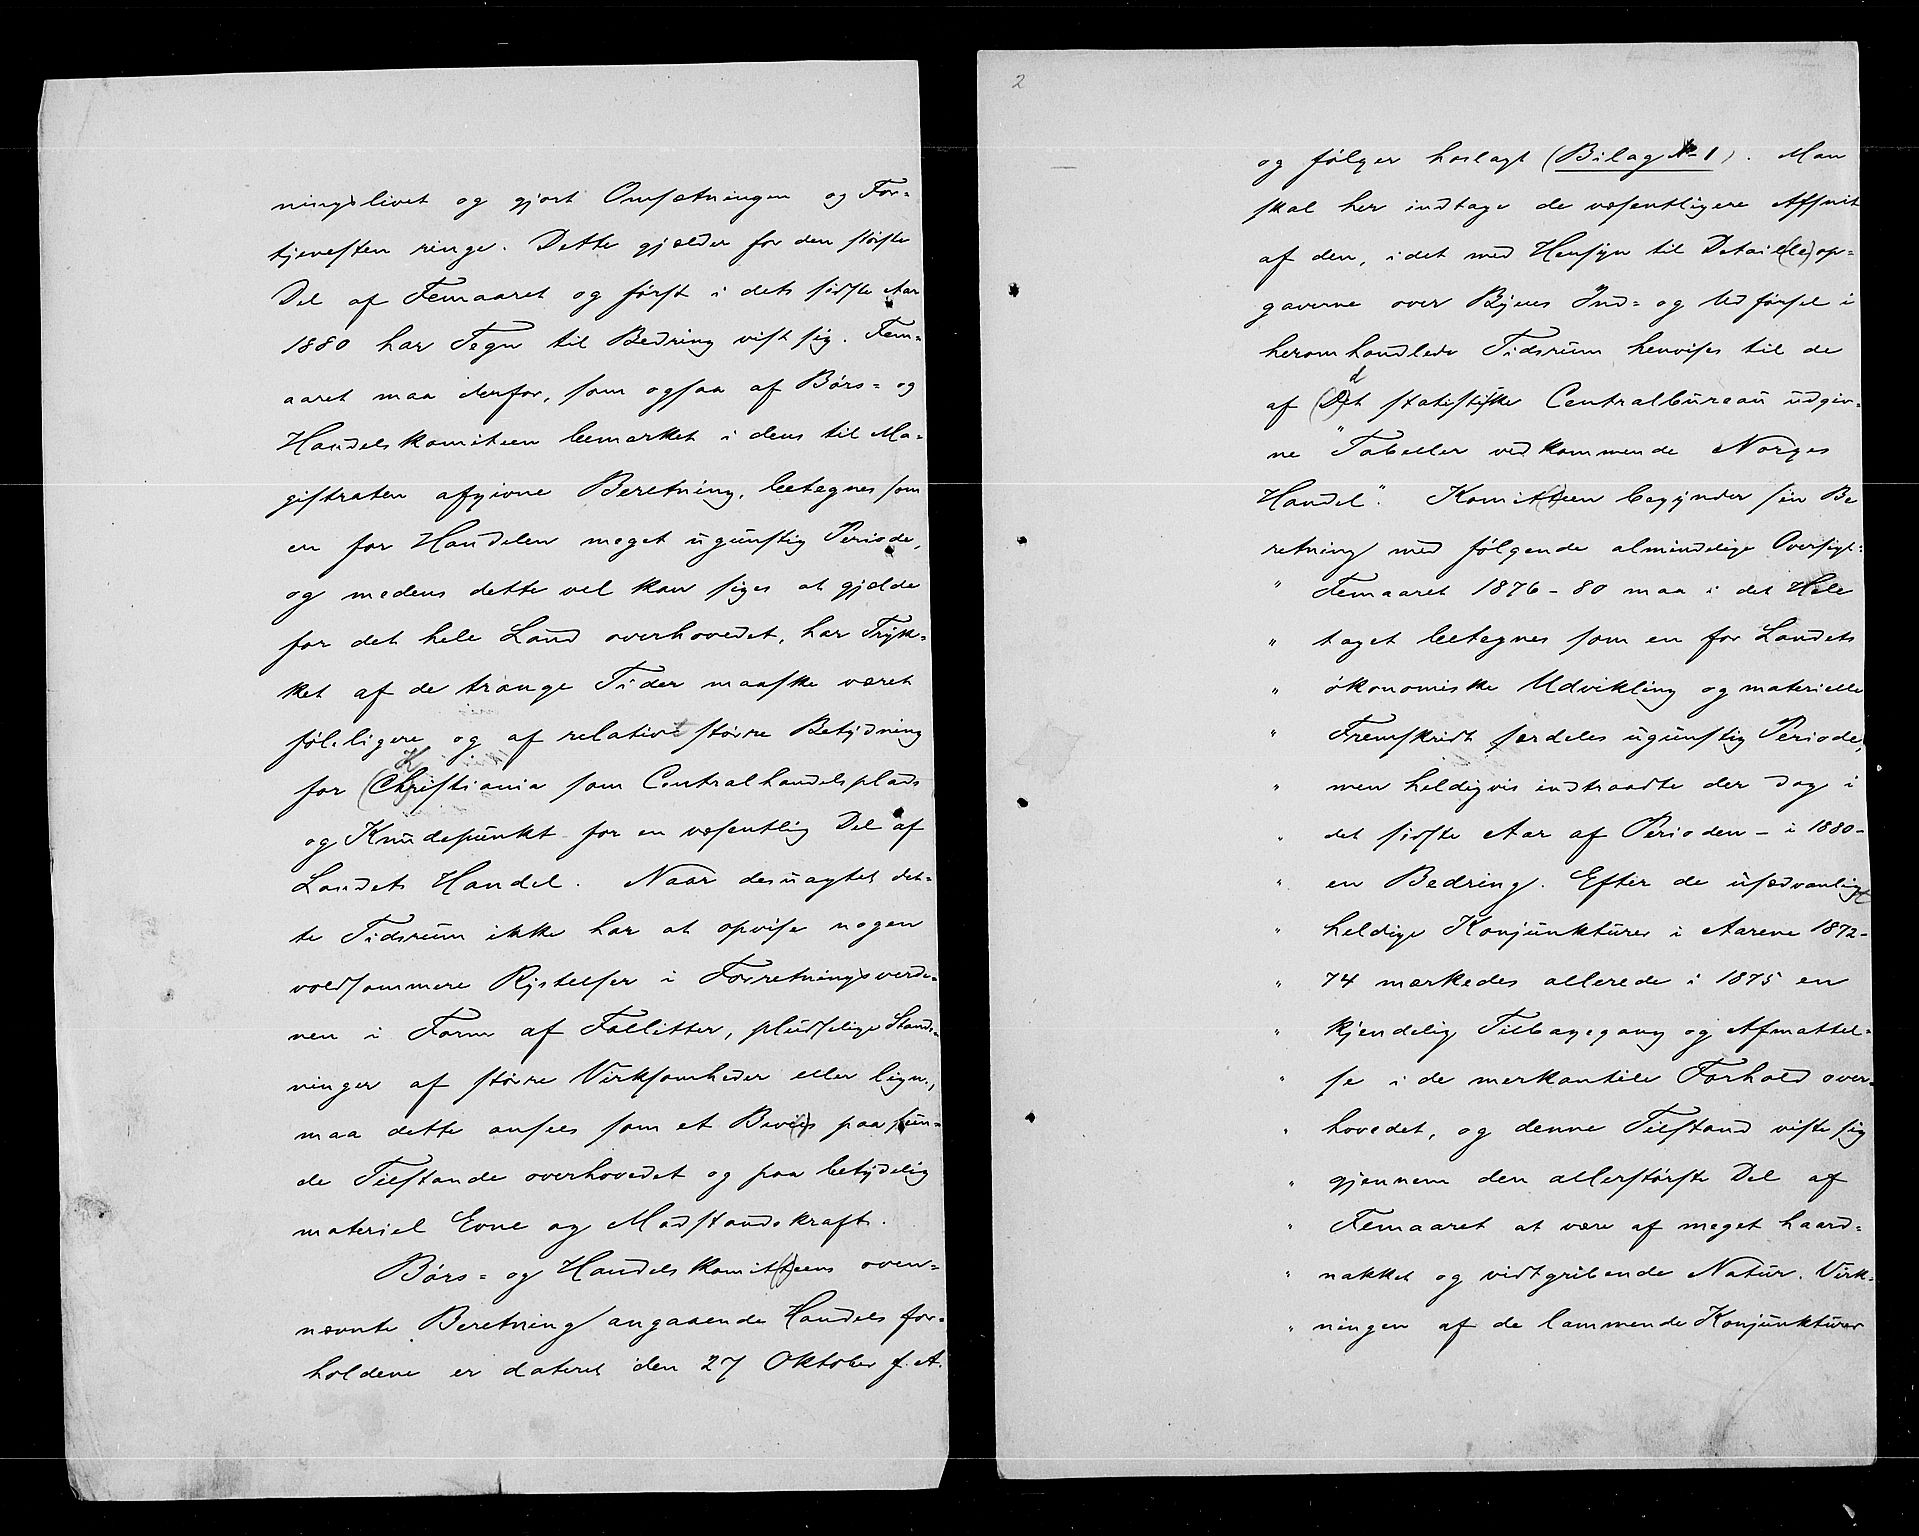 ningslivet og gjort Omsætningen og For=
tjenesten ringe. Dette gjælder for den største
Del af Femaaret og først i dets sidste Aar
1880 har Tegn til Bedring vist sig. Fem=
aaret maa derfor, som ogsaa af Børs= og
Handelskomiteen bemærket i dens til Ma=
gistraten afgivne Beretning, betegnes som
en for Handelen meget ugunstig Periode,
og medens dette vel kan siges at gjælde
for det hele Land overhovedet, har Tryk=
ket af de trange Tider maaske været
føleligere og af relativt større Betydning
K
for (Ch)ristiania som Centralhandelsplads
og Knudepunkt for en væsentlig Del af
Landets Handel. Naar desuagtet det=
te Tidsrum ikke har at opvise nogen
voldsommere Rystelser i Forretningsverde=
nen i Form af Fallitter, pludselige Stands=
ninger af større Virksomheder eller lign.,
maa dette ansees som et Bevi(i)s paa sun=
de Tilstande overhovedet og paa betydelig
materiel Evne og Modstandskraft.
Børs= og Handelskomit(t)eens oven=
nævnte Beretning angaaende Handelsfor=
holdene er dateret den 27 Oktober f. A.
2
og følger hoslagt (Bilag № 1). Man
skal her indtage de væsentligere Afsnit
af den, idet med Hensyn til Detail(le)op=
gaverne over Byens Ind= og Udførsel i
heromhandlede Tidsrum henvises til de
d
af (D)et statistiske Centralbureau udgiv=
ne "Tabeller vedkommende Norges
Handel". Komit(t)een begynder sin Be
retning med følgende almindelige Oversigt:
" Femaaret 1876-80 maa i det Hele
" taget betegnes som en for Landets
" økonomiske Udvikling og materielle
" Fremskridt særdeles ugunstig Periode,
" men heldigvis indtraadte der dog i
" det sidste Aar af Perioden - i 1880 -
" en Bedring. Efter de usædvanligt
" heldige Konjunkturer i Aarene 1872-
" 74 mærkedes allerede i 1875 en
" kjendelig Tilbagegang og Afmattel=
" se i de merkantile Forhold over=
" hovedet, og denne Tilstand viste sig
" gjennem den allerstørste Del af
" Femaaret at være af meget haard=
" nakket og vidtgribende Natur. Virk=
" ningen af de lammende Konjunkturer